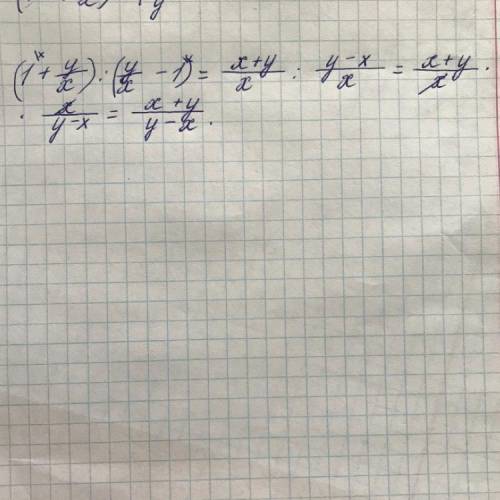 (1 + y/x) : (y/x - 1) = x+y/x : y-x/x = x+y/x ·
· x/y-x = x+y/y-x.